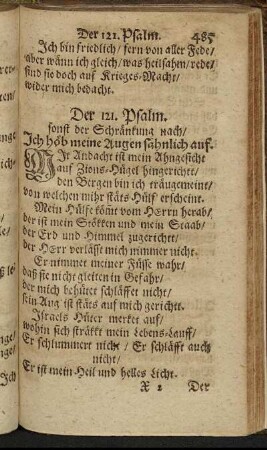 Der 121. Psalm. 485
Ich bin friedlich/ fern von aller Fede/
aber wänn ich gleich/ was heilsahm/ rede/
sind sie doch auf Krieges-Macht/
wider mich bedacht.
Der 121. Psalm.
sonst der Schränkung nach/
Ich höb meine Augen sähnlich auf.
Mit Andacht ist mein Ahngesicht
auf Zions-Hügel hingericht/
den Bergen bin ich träugemeint/
von welchen mihr stäts Hülf erscheint.
Mein Hülfe kömt vom HErrn herab/
der ist mein Stökken und mein Staab/
der Erd und Himmel zugericht/
der HErr verlässt mich nimmer nicht.
Er nimmet meiner Füsse wahr/
daß sie nicht gleiten in Gefahr/
der mich behütet schläffet nicht/
sein Aug ist stäts auf mich gericht.
Israels Hüter merket auf/
wohin sich sträkkt mein Lebens-Lauff/
Er schlummert nicht/ Er schläfft auch
nicht/
Er ist mein Heil und helles Licht.
X 2 Der